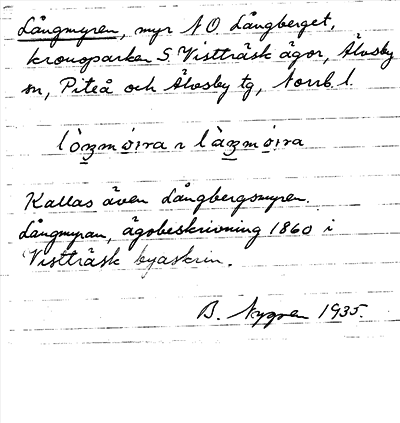 Långmyren, myr N O. Långberget,
kronoparken S. Vistträsk ägor, Älvsby
sn, Piteå och Älvsby tg, Norrb. l.
Kallas även Långbergsmyren.
Långmyran, ägobeskrivning 1860 i
Vistträsk byaskrin.
B. Nygren 1935.